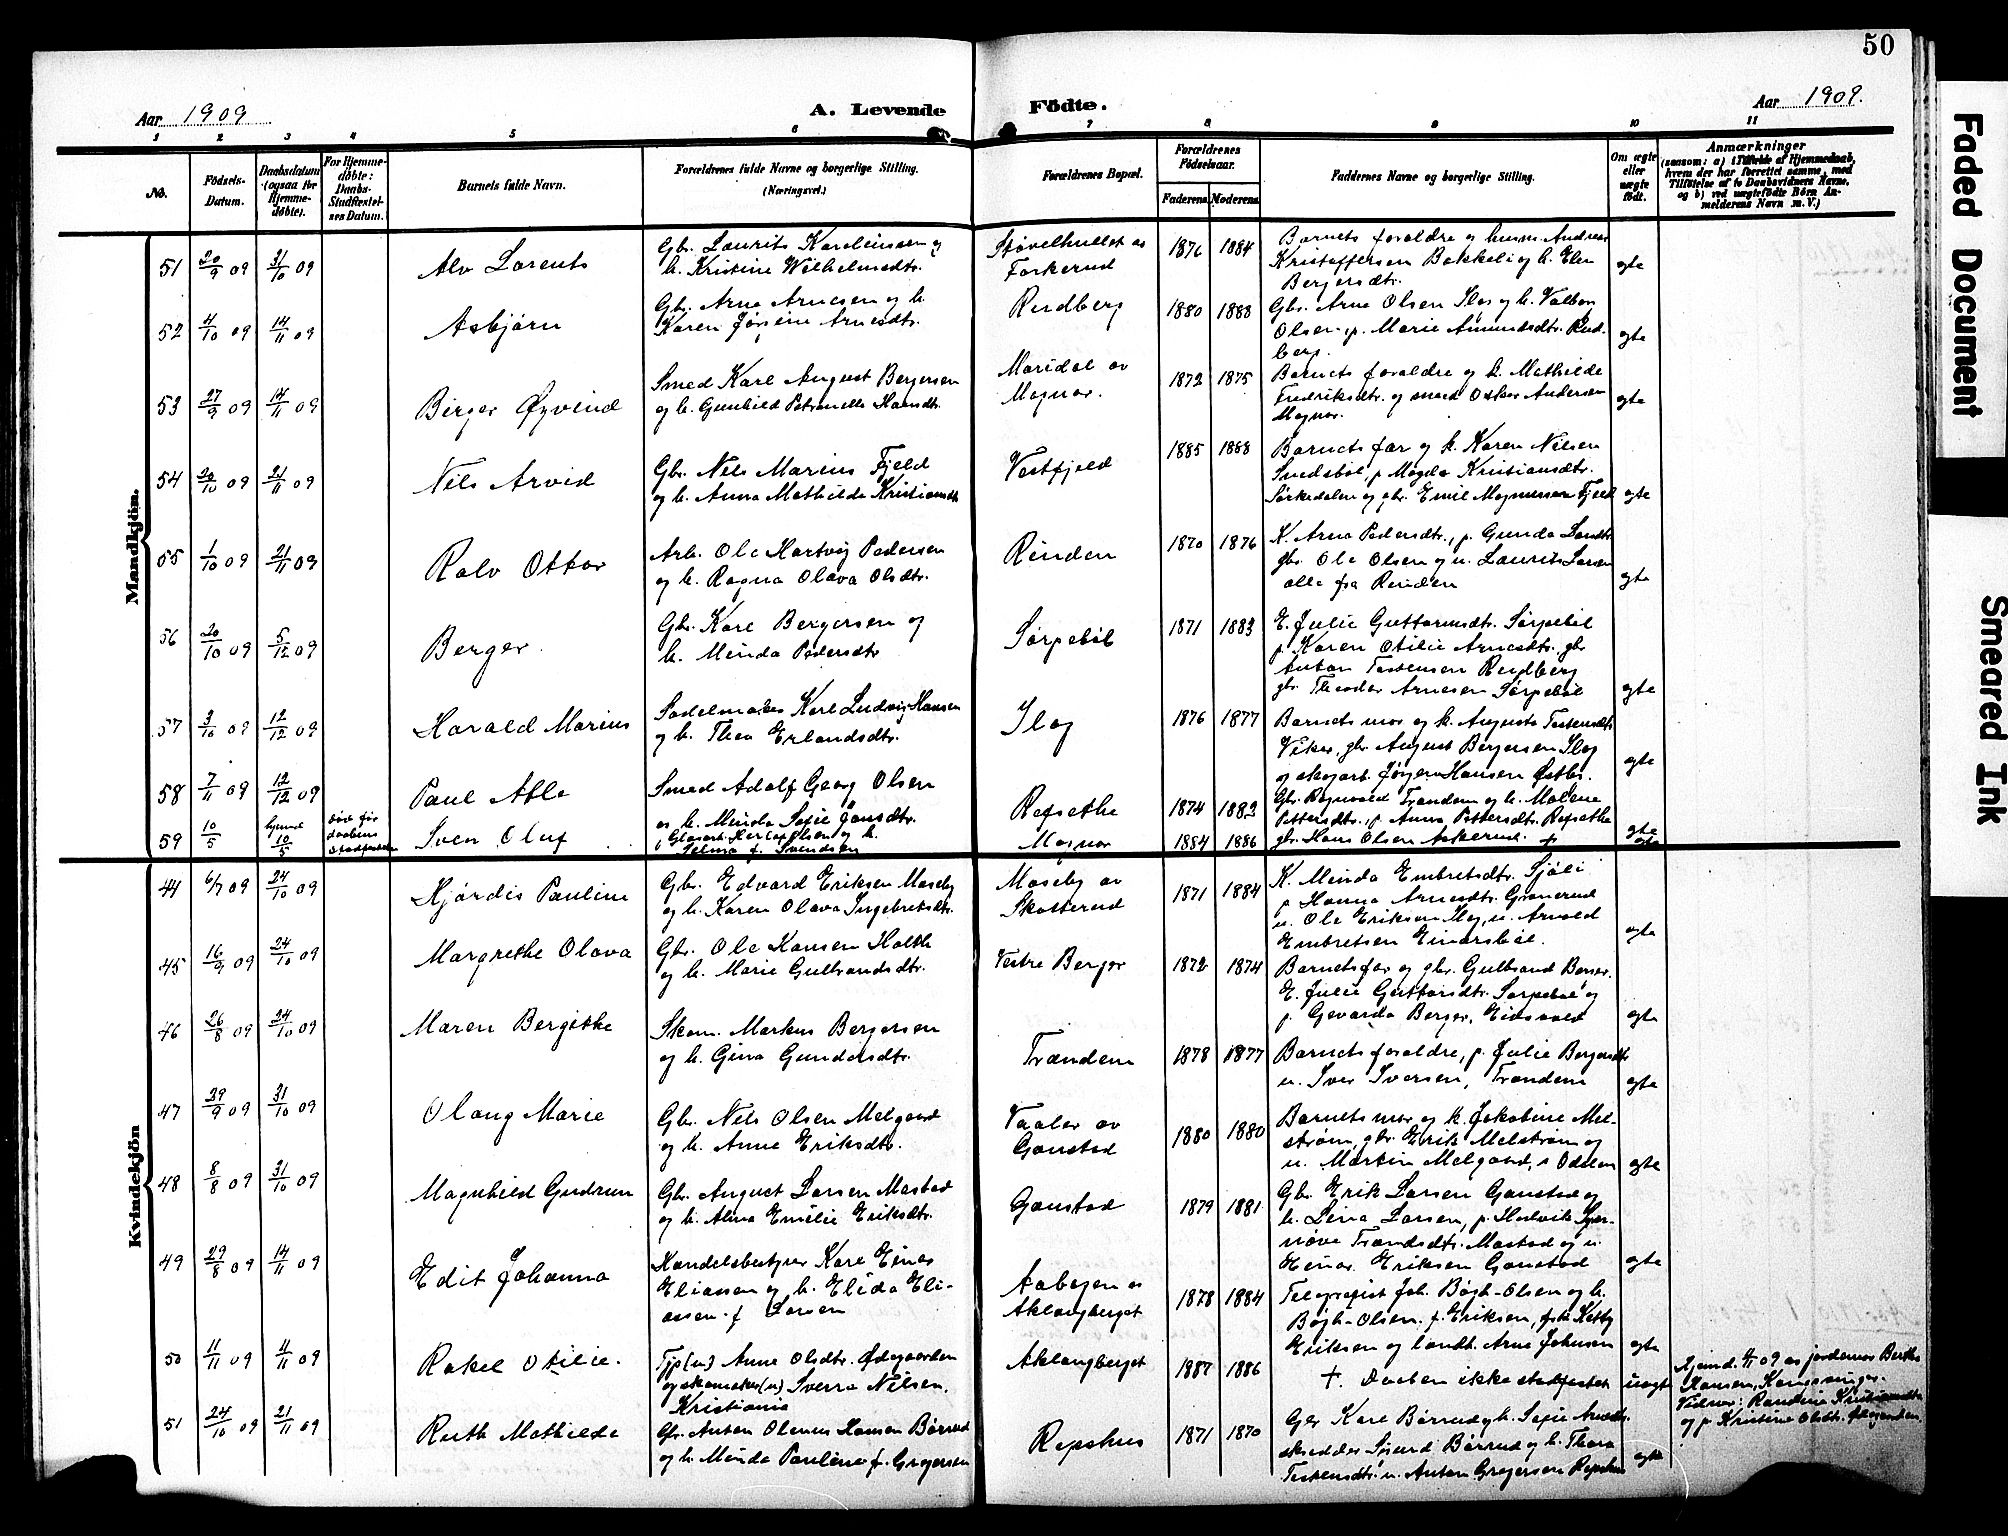 50
Aar 1909
A. Levende
Födte.
Aar 1909.
1 2 3 4 5 6 7 8 9 10 11
No.
Födsels-Datum.
Daabsdatum (ogsaa for Hjemmedöbte).
For Hjemmedöbte: Daabs-Stadfæstelses Datum.
Barnets fulde Navn.
Forældrenes fulde Navne og borgerlige Stilling.
(Næringsvei.)
Forældrenes Bopæl.
Forældrenes Födselsaar.
Faderens. Moderens.
Faddernes Navne og borgerlige Stilling.
Om ægte eller uægte födt.
Anmærkninger
(saasom: a) i Tilfælde af Hjemmedaab, hvem der har forrettet samme, med Tilföielse af to Daabsvidners Navne, og b) ved uægtefödte Börn Anmelderens Navn m. V.)
Mandkjön.
51 20/9 09 31/10 09 Alv Lorents
Gbr. Laurits Karelinsen og
h. Kristine Wilhelmsdtr.
Støvelhullet av
Forkerud
1876 1884
Barnets forældre og husm. Andreas
Kristoffersen Bakkeli og h. Elen
Bergersdtr.
egte
52 4/10 09 14/11 09 Asbjørn
Gbr. Arne Arnesen og h.
Karen Jørgine Arnesdtr.
Rudberg
1880 1888
Gbr. Arne Olsen Ilag og h. Valborg
Olsen, p. Marie Amundsdtr. Rud-
berg.
egte
53 27/9 09 14/11 09 Birger Øyvind
Smed Karl August Bergersen
og h. Gunhild Petronelle Hansdtr.
Maridal av
Magnor.
1872 1875
Barnets forældre og k. Mathilde
Fredriksdtr. og smed Oskar Andersen
Magnor.
egte
54 20/10 09 21/11 09 Nils Arvid
Gbr. Nils Marius Fjeld
og h. Anna Mathilde Kristiansdtr
Vestfjeld
1885 1888
Barnets far og k. Karen Nilsen
Snedsbøl, p. Magda Kristiansdtr.
Sørkedalen og gbr. Emil Magnussen Fjeld
egte
55 1/10 09 21/11 09 Ralv Ottar
Arb. Ole Hartvig Pedersen
og h. Ragna Olava Olsdtr.
Rinden
1870 1876
K. Arna Pedersdtr., p. Gunda
gbr. Ole Olsen og u. Laurits Larsen
alle fra Rinden
egte
56 20/10 09 5/12 09 Berger.
Gbr. Karl Bergersen og
h. Minda Pedersdtr
Sørpebøl
1871 1883
E. Julie Guttormsdtr. Sørpebøl
p. Karen Otilie Arnesdtr. gbr
Anton Torstensen Rudberg
gbr. Theodor Arnesen Sørpebøl
egte
57 3/10 09 12/12 09 Harald Marius
Sadelmaker Karl Ludvig Hansen
og h. Thea Erlandsdtr.
Ilag
1876 1877
Barnets mor og k. Augusta Torstensdtr.
Viker, gbr. August Bergersen Ilag
og skogarb. Jørgen Hansen Østby.
egte
58 7/11 09 12/12 09 Paul Atle
Smed Adolf Georg Olsen
og h. Minda Sofie Jonsdtr.
Refsethe
1874 1883
Gbr. Ragnvald Trandem og h. Malene
Pettersdtr., p. Anna Pettersdtr. Refsethe
gbr. Hans Olsen Askerud.
egte
59 10/5 hjemd 10/5 død før daabens stadfæstelse Sven Oluf
Glasarb. Olsen og h.
Selma f. Svendsen
Magnor
1884 1886
+
egte
Kvindekjön
44 6/7 09 24/10 09 Hjørdis Pauline
Gbr. Edvard Eriksen Moseby
og h. Karen Olava Ingebretsdtr.
Moseby av
Skotterud
1871 1884
K. Minda Embretsdtr. Sjøli
p. Hanna Arnesdtr. Granerud
u. Ole Eriksen Ilag, u. Arnold
Embretsen Einarsbøl.
egte
45 16/9 09 24/10 09 Margrethe Olava
Gbr. Ole Hansen Holth
og h. Marie Gulbrandsdtr.
Vestre Berger
1872 1874
Barnets far og gbr. Gulbrand Berger.
E. Julie Guttorsdtr. Sørpebøl og
p. Gevarda Berger, Eidsvold
egte
46 26/8 09 24/10 09 Maren Bergithe
Skom. Markus Bergersen
og h. Gina Gundersdtr.
Trandem
1878 1877
Barnets forældre, p. Julie Bergersdtr
u. Iver Iversen, Trandem
egte
47 29/9 09 31/10 09 Olaug Marie
Gbr. Nils Olsen Melgaard
og h. Anne Eriksdtr.
Vaaler av
Gaustad
1880 1880
Barnets mor og k. Jakobine Mel-
strøm, gbr. Erik Melstrøm og
u. Martin Melgaard, i Odalen
egte
48 8/8 09 31/10 09 Magnhild Gudrun
Gbr. August Larsen Mastad
og h. Alma Emilie Eriksdtr.
Gaustad
1879 1881
Gbr. Erik Larsen Gaustad og
h. Lina Larsen, p. Synnøve Trondsdtr. Mastad og u.
Einar Eriksen Gaustad
egte
49 29/8 09 14/11 09 Edit Johanna
Handelsbestyrer Karl Einar
Eliassen og h. Elida Eli-
assen f. Larsen
Aabogen av
Aklangberget
1878 1884
Telegrafist Joh. Bøgh-Olsen og h.
Bøgh-Olsen f. Eriksen, frk. Ketty
Eriksen og landh. Arne Johnsen
egte
50 11/11 09 11/11 09 Rakel Otilie.
Tjp (u) Anne Olsdtr. Ødegaarden
og skomaker (u) Sverre Nilsen.
Kristiania
Aklangberget
1887 1886
+. Daaben ikke stadfestet
uegte
Hjemd. 11/11 09 av jordemor Berthe
Hansen, Kongsvinger.
Vidner: Randine Kristiansdtr
og p. Kristine Olsdtr. Ødegaarden
51 24/10 09 21/11 09 Ruth Mathilde
Gbr. Anton Olenus Hansen Børrud
og h. Minda Pauline f. Gregersen
Repshus
1871 1870
Gbr Karl Børrud og h. Sofie Arnesdtr.
skrædder Sigurd Børrud og h. Thora
Torstensdtr. u. Anton Gregersen Repshus
egte
Faded Document
Smeared Ink